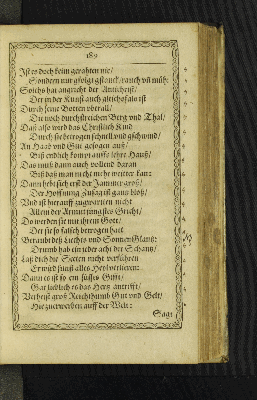 189
Ist es doch keim gerahten nie/
Sondern nur gfolgt gstanck/ rauch vn̄ müh:
Solchs hat angricht der Antichrist/
Der in der Kunst auch gleichsfals ist
Durch seine Botten vberall/
Die noch durchstreichen Berg vnd Thal/
Daß also wird das Christlich Kind
Durch sie betrogen schnell vnd gschwind/
An Haab vnd Gut gesogen auß/
Biß endlich kompt auffs lehre Hauß/
Das muß dann auch vollend daran
Biß daß man nicht mehr weitter kan:
Dann hebt sich erst der Jammer groß/
Der Hoffnung Zusag ist gantz bloß/
Vnd ist hierauff zugwarten nicht
Allein der Armut jüngstes Gricht/
Do werden sie mit ihrem Gott/
Der sie so falsch betrogen hatt
Beraubt deß Liechts vnd Sonnen Glantz:
Drumb hab ein jeder acht der Schantz/
Laß dich die Secten nicht verführen
Er würd sunst alles Heyl verlieren:
Dann es ist so ein süsses Gifft/
Gar lieblich es das Hertz antrifft/
Verheist groß Reichthumb Gut vnd Gelt/
Hie zu erwerben auff der Welt:
Sagt